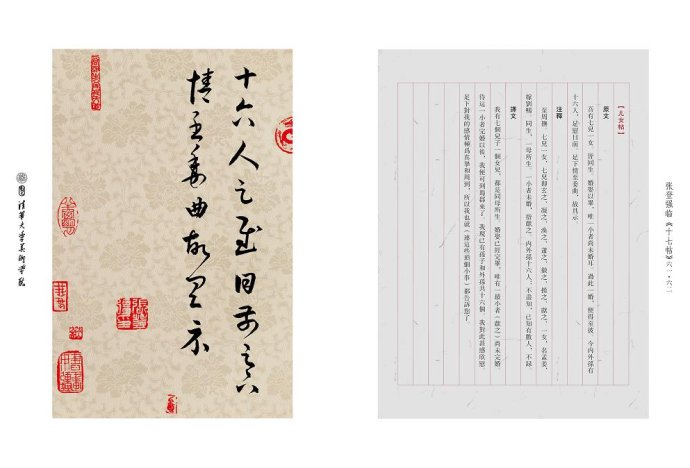 张登强临《十七帖》六一·六二
【儿女帖】
原文
吾有七兒一女，皆同生。婚娶以畢，唯一小者尚未婚耳。過此一婚，便得至彼。今內外孫有
十六人，足慰目前。足下情至委曲，故具示
注釋
至周撫。七兒一女，七兒即玄之、凝之、渙之、肅之、徽之、操之、獻之，一女，名孟姜，
嫁劉暢。同生，一母所生。一小者未婚，指獻之。內外孫十六人：不盡知，已知有數人，不錄
譯文
我有七個兒子一個女兒，都是同母所生。婚娶已經完畢，唯有一最小者（獻之）尚未完婚，
待這一小者完婚以後，我便可到蜀郡來了。我現已有孫子和外孫共十六個，我對此甚感欣慰，
足下對我的感情極爲真摯和周到，所以我也就（連這些瑣細小事）都告訴您了。
十六人足慰目前足下
情至委曲故具示
清華大學美術學院